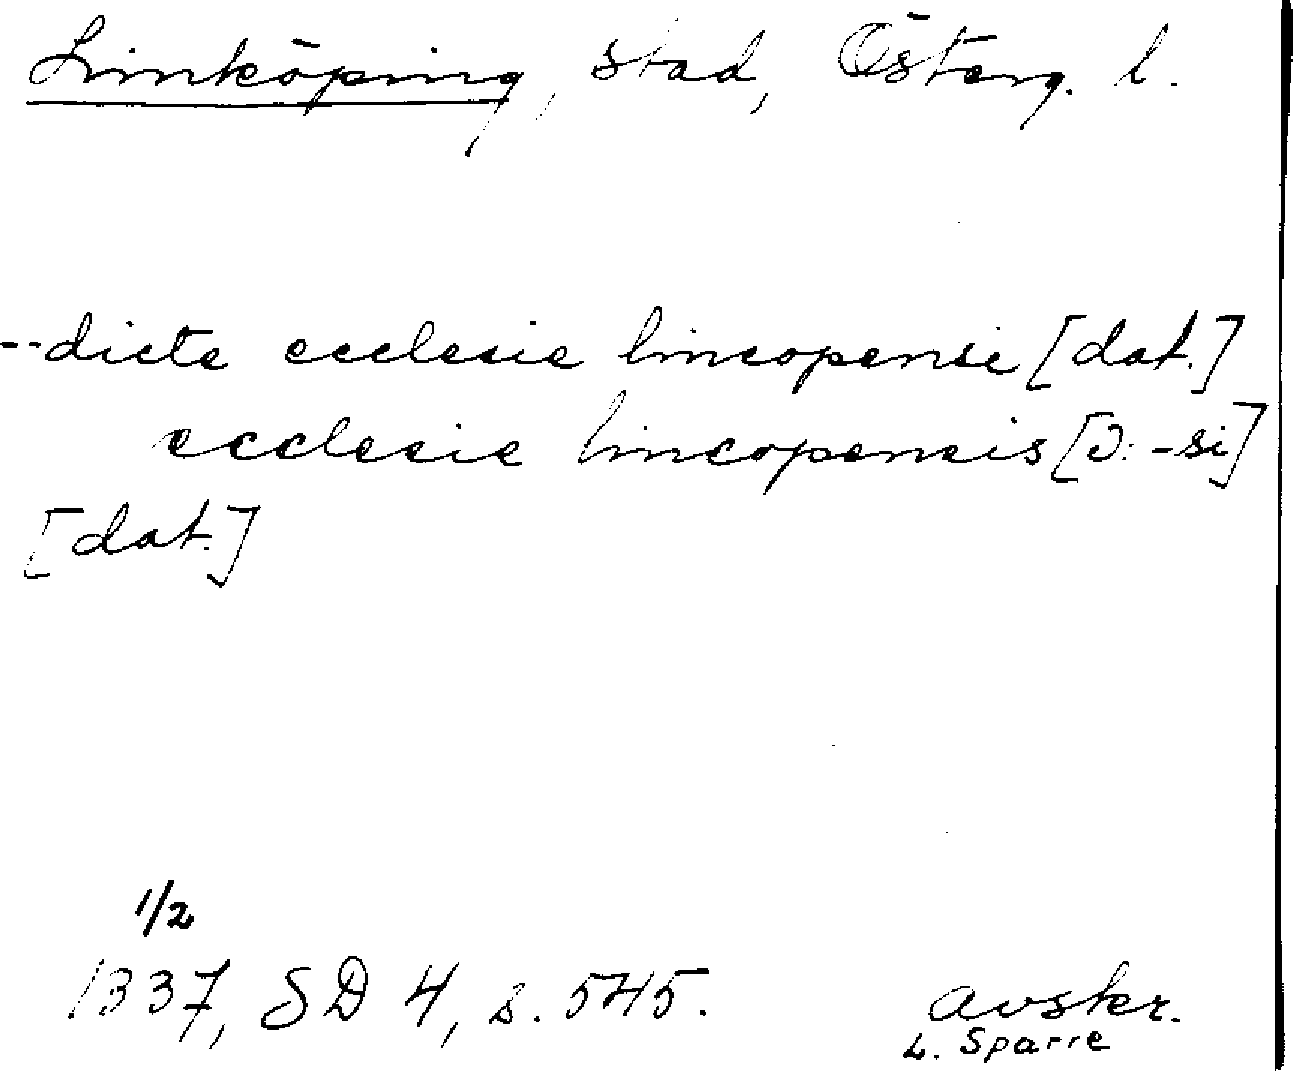 Linköping, stad, Österg. l.
--dicte ecclesie lincopensi [dat.]
ecclesie lincopensis [ɔ: -si]
[dat.]
1/2
1337, SD 4, s. 545. avskr.
L. Sparre